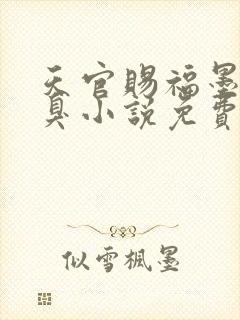 天官賜福墨
臭小説免費
似雪楓墨